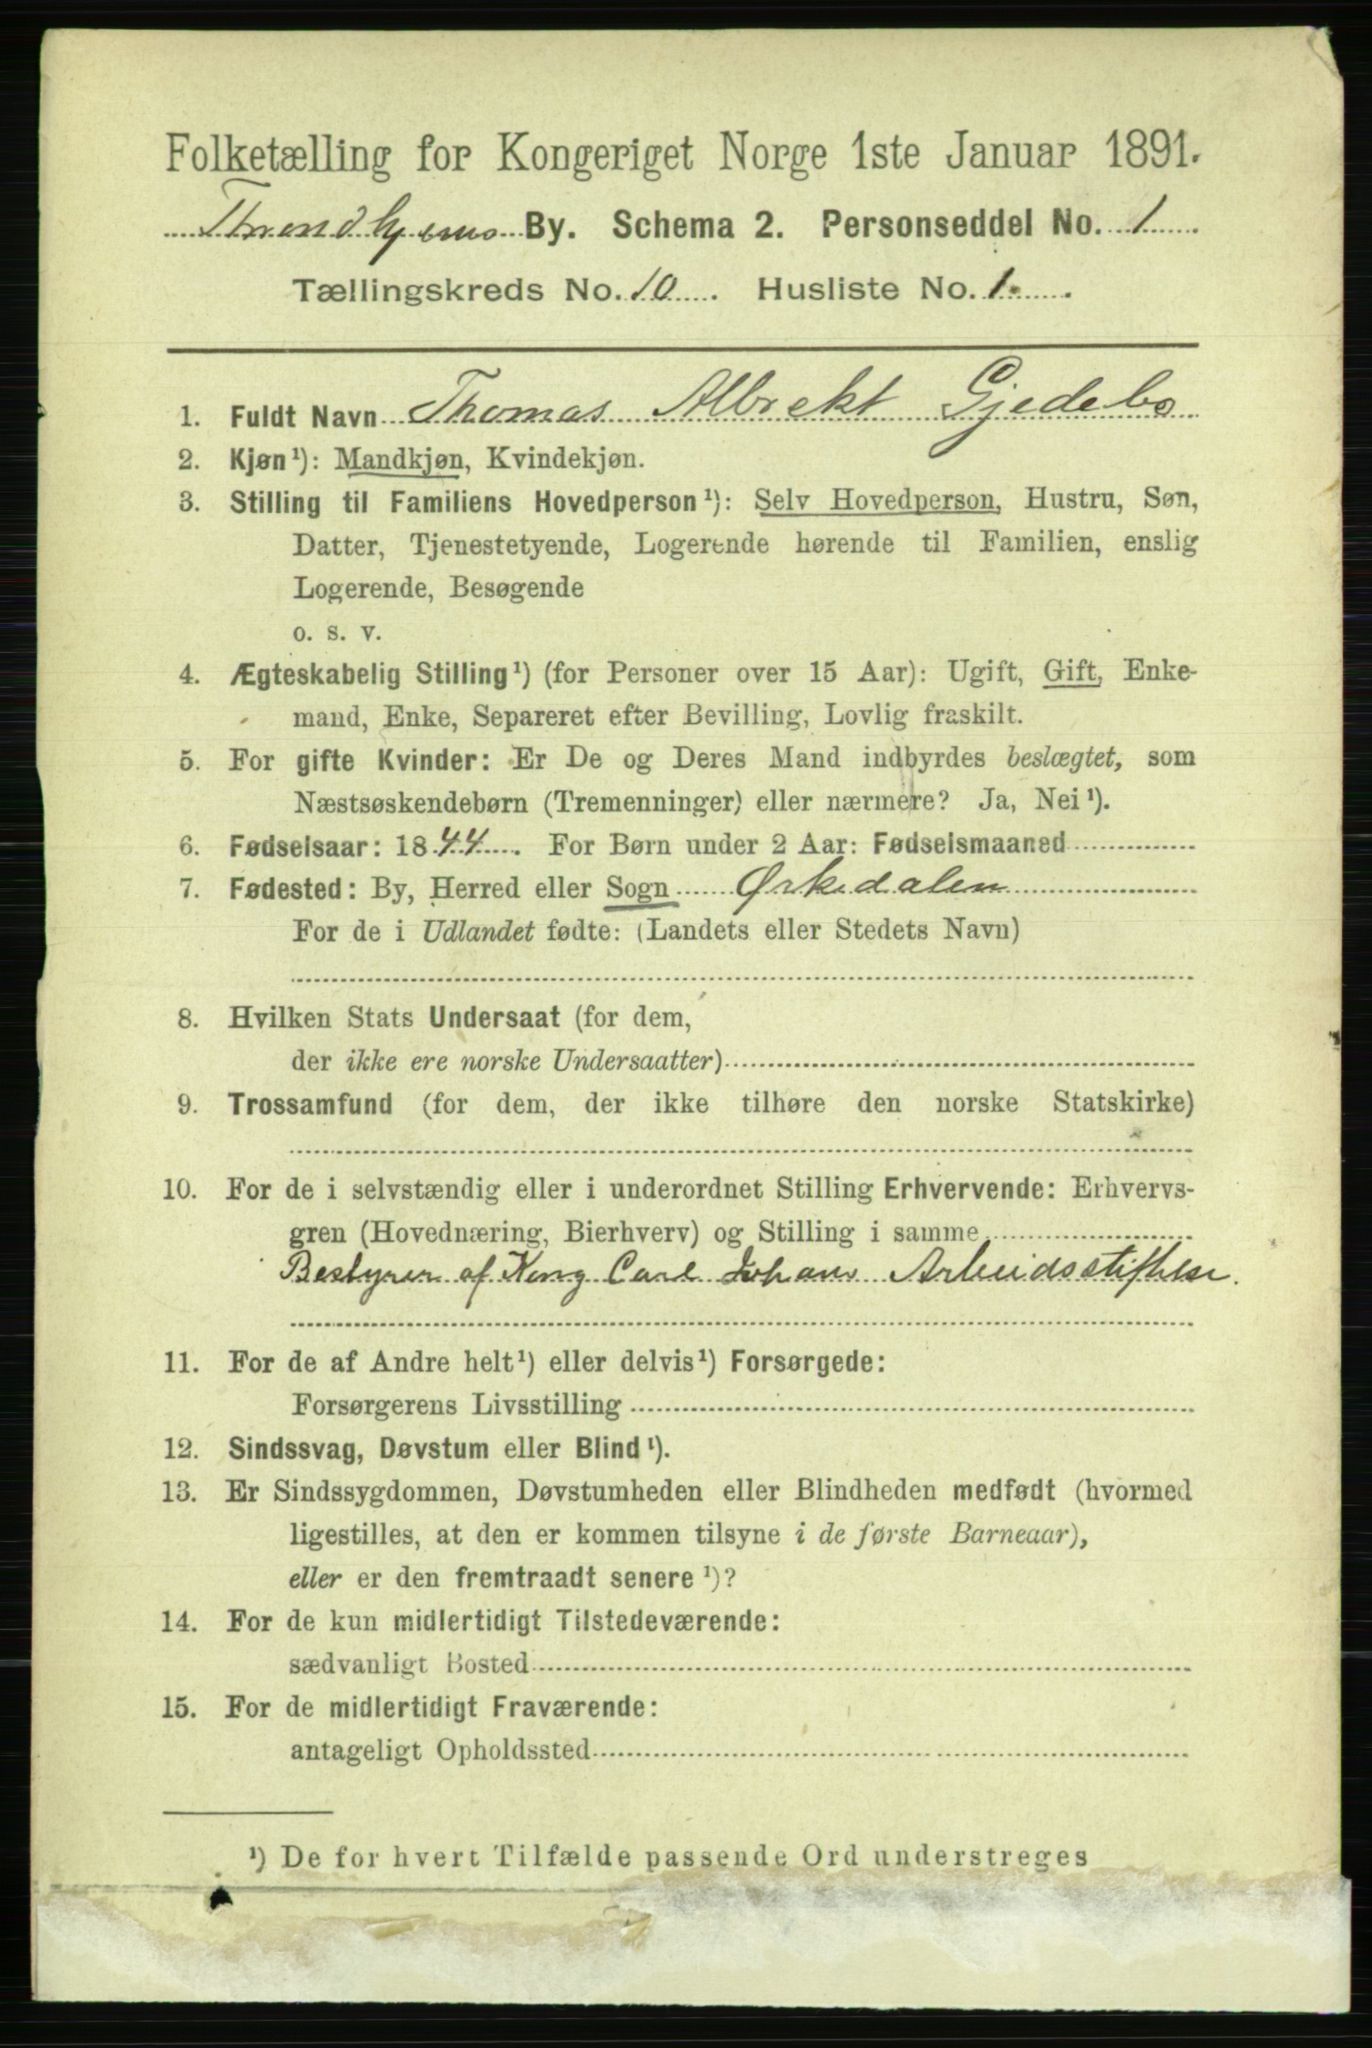 Folketælling for Kongeriget Norge 1ste Januar 1891.
Throndhjems By. Schema 2. Personseddel No. 1
Tællingskreds No. 10. Husliste No. 1.
1. Fuldt Navn Thomas Albrekt Gjedebo
2. Kjøn¹): Mandkjøn, Kvindekjøn.
3. Stilling til Familiens Hovedperson¹): Selv Hovedperson, Hustru, Søn,
Datter, Tjenestetyende, Logerende hørende til Familien, enslig
Logerende, Besøgende
o. s. v.
4. Ægteskabelig Stilling¹) (for Personer over 15 Aar): Ugift, Gift, Enke-
mand, Enke, Separeret efter Bevilling, Lovlig fraskilt.
5. For gifte Kvinder: Er De og Deres Mand indbyrdes beslægtet, som
Næstsøskendebørn (Tremenninger) eller nærmere? Ja, Nei¹).
6. Fødselsaar: 1844. For Børn under 2 Aar: Fødselsmaaned
7. Fødested: By, Herred eller Sogn Ørkedalen
For de i Udlandet fødte: (Landets eller Stedets Navn)
8. Hvilken Stats Undersaat (for dem,
der ikke ere norske Undersaatter)
9. Trossamfund (for dem, der ikke tilhøre den norske Statskirke)
10. For de i selvstændig eller i underordnet Stilling Erhvervende: Erhvervs-
gren (Hovednæring, Bierhverv) og Stilling i samme
Bestyrer af Kong Carl Johans Arbeidsstiftelse.
11. For de af Andre helt¹) eller delvis¹) Forsørgede:
Forsørgerens Livsstilling
12. Sindssvag, Døvstum eller Blind¹).
13. Er Sindssygdommen, Døvstumheden eller Blindheden medfødt (hvormed
ligestilles, at den er kommen tilsyne i de første Barneaar),
eller er den fremtraadt senere¹)?
14. For de kun midlertidigt Tilstedeværende:
sædvanligt Bosted
15. For de midlertidigt Fraværende:
antageligt Opholdssted
¹) De for hvert Tilfælde passende Ord understreges